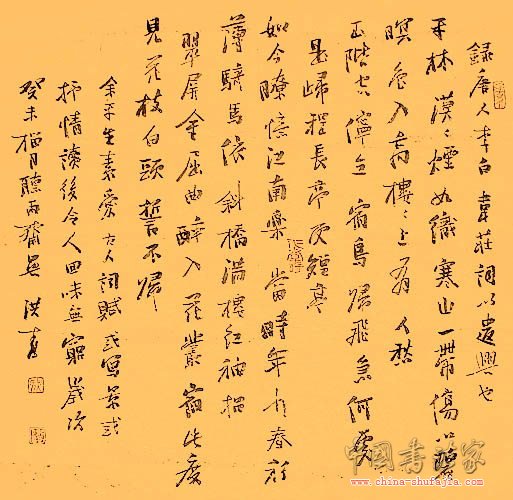 錄唐人李白韋莊詞以遣興也
平林漠〻煙如織寒山一帶傷心碧
暝色入高樓〻上有人愁
玉階空佇立宿鳥歸飛急何處
是歸程長亭更短亭
如今卻憶江南樂當時年少春衫
薄騎馬倚斜橋滿樓紅袖招
翠屏金屈曲醉入花叢宿此度
見花枝白頭誓不歸
余平生素愛古人詞賦或寫景或
抒情讀後令人回味無窮歲次
癸未月聽雨齋洪
中国書法家
www.china-shufajia.com